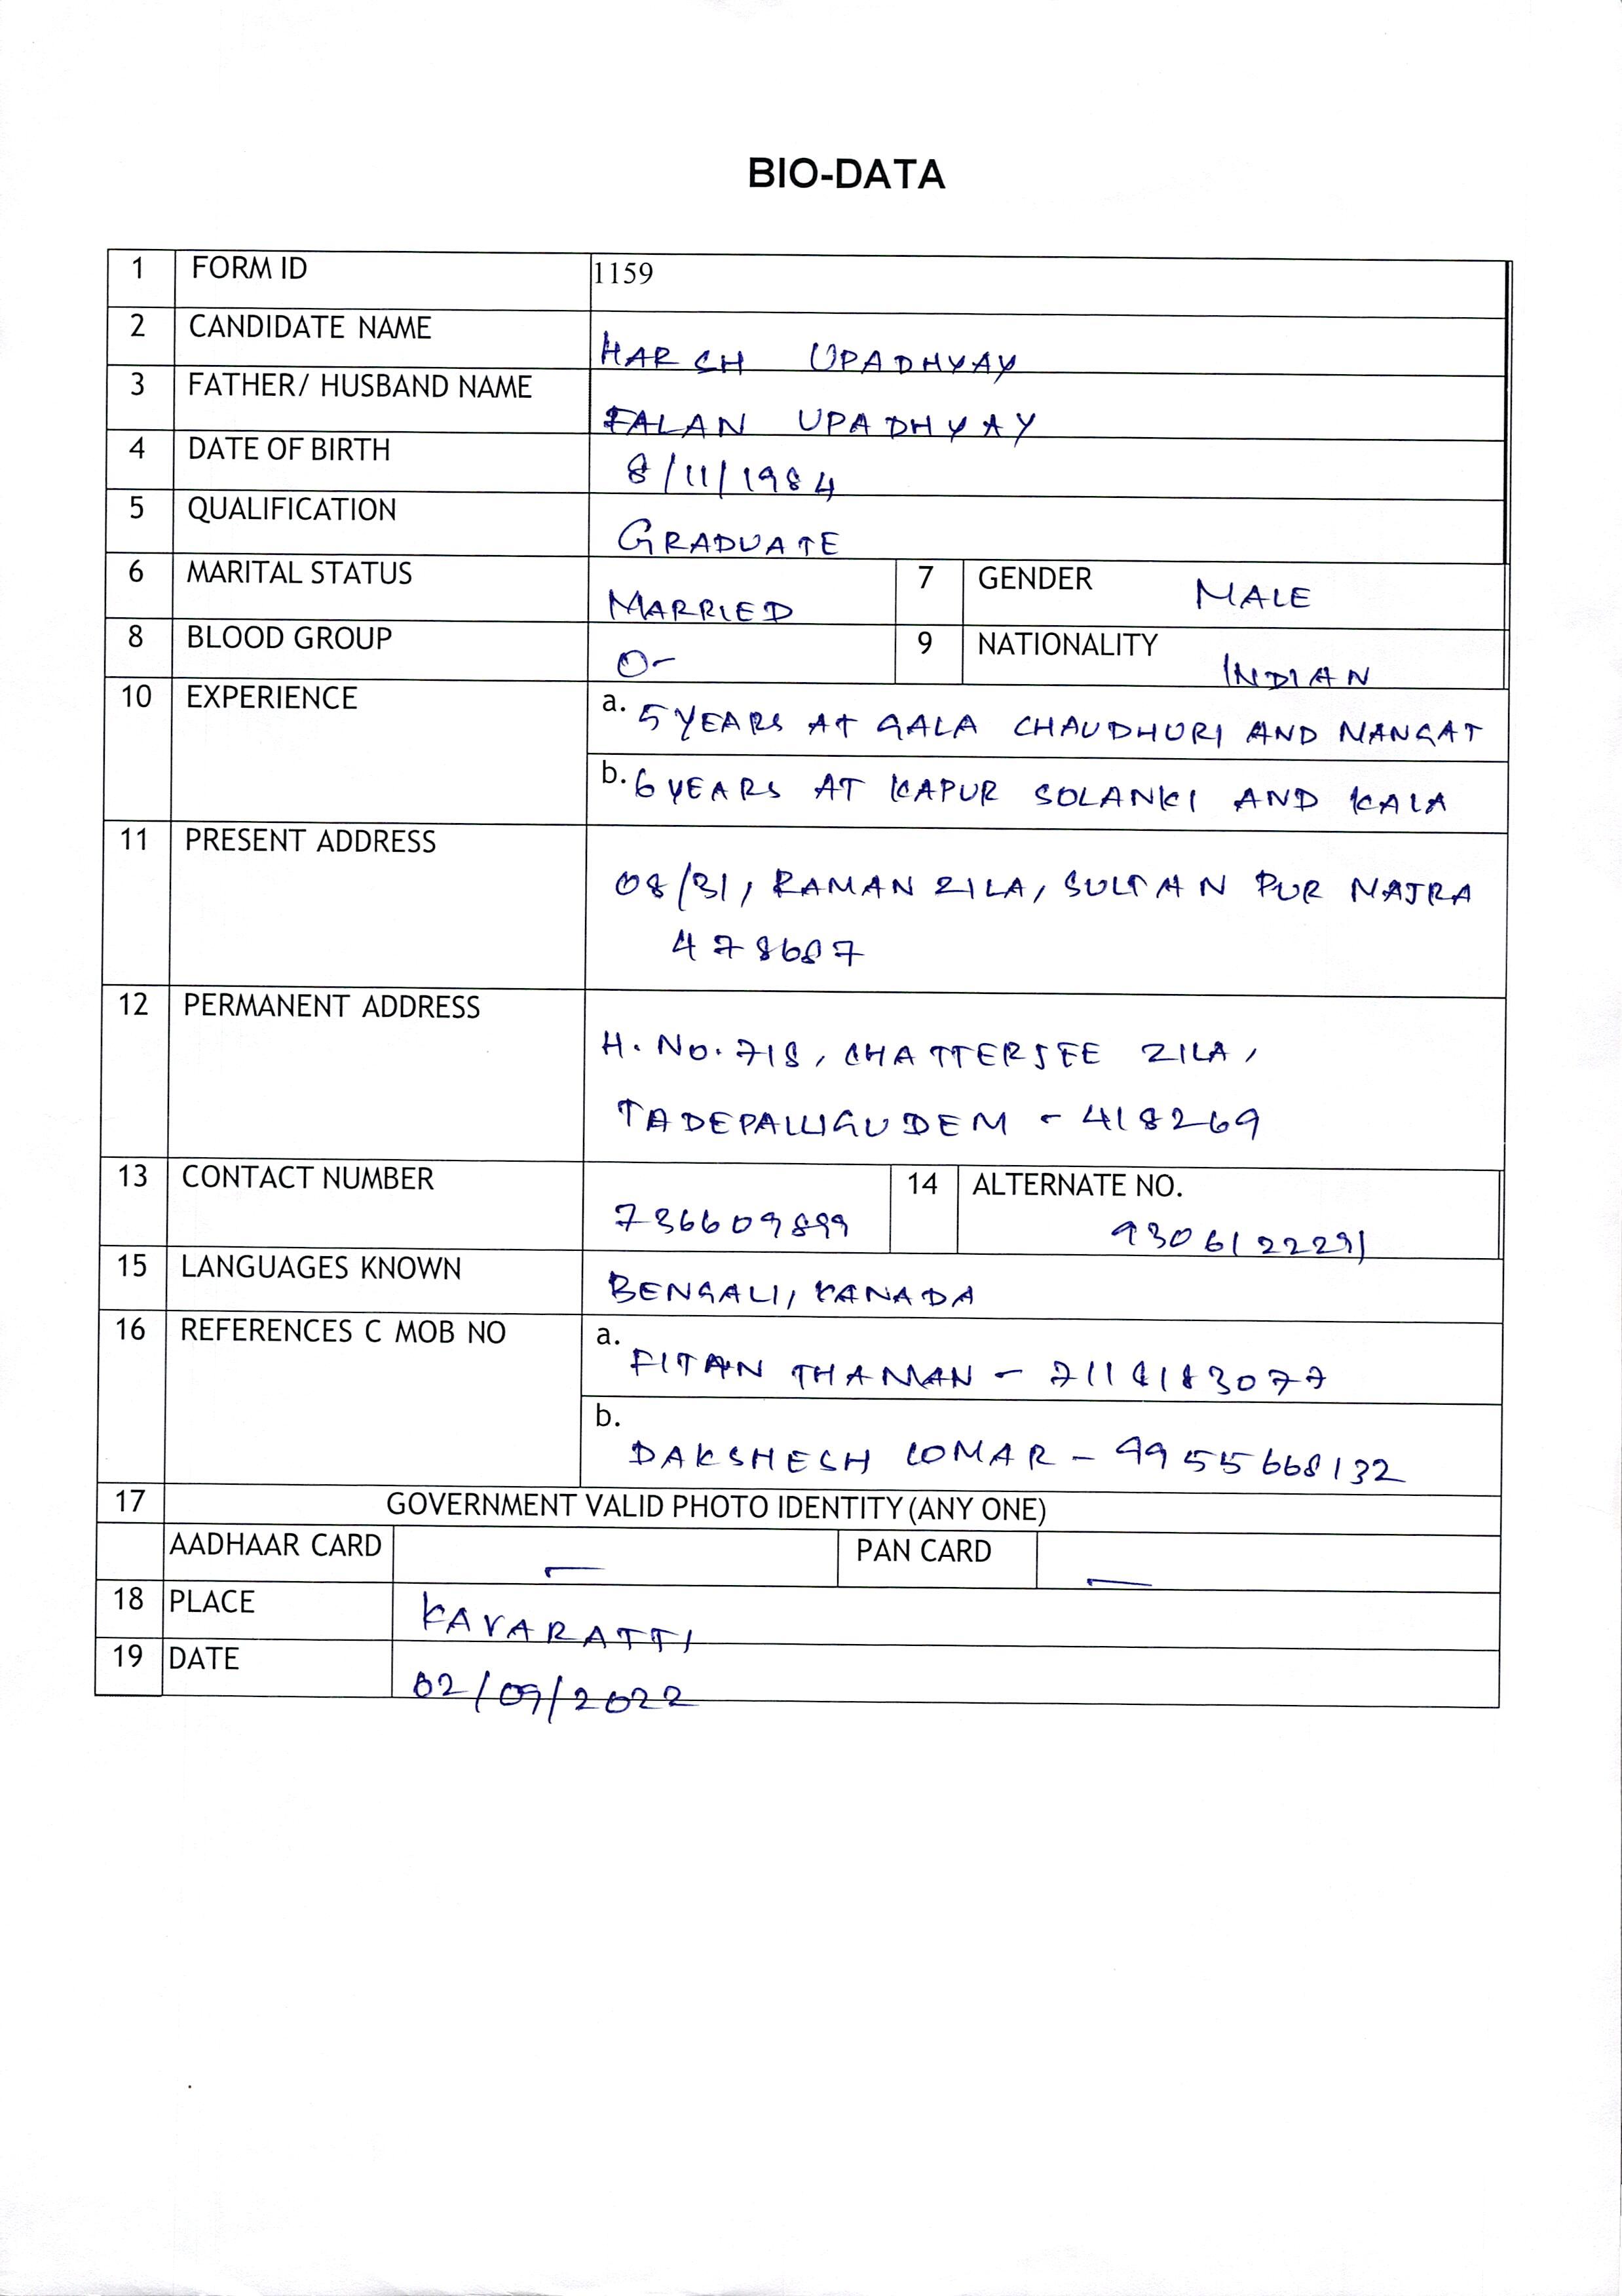 BIO-DATA
1 FORM ID 1159
2 CANDIDATE NAME HARSH UPADHYAY
3 FATHER/ HUSBAND NAME FALAN UPADHYAY
4 DATE OF BIRTH 8/11/1984
5 QUALIFICATION GRADUATE
6 MARITAL STATUS MARRIED 7 GENDER MALE
8 BLOOD GROUP O- 9 NATIONALITY INDIAN
10 EXPERIENCE a. 5 YEARS AT GALA CHAUDHURI AND MANGAT
b. 6 YEARS AT KAPUR SOLANKI AND KALA
11 PRESENT ADDRESS
08/31, RAMAN ZILA, SULTAN PUR MAJRA
478687
12 PERMANENT ADDRESS
H. NO. 718, CHATTERJEE ZILA,
TADEPALLIGUDEM - 418269
13 CONTACT NUMBER 736609899 14 ALTERNATE NO. 9306122291
15 LANGUAGES KNOWN BENGALI, KANADA
16 REFERENCES C MOB NO a. FITAN THAMAN - 7118183077
b. DAKSHESH LOMAR - 9955668132
17 GOVERNMENT VALID PHOTO IDENTITY (ANY ONE)
AADHAAR CARD - PAN CARD -
18 PLACE KAVARATTI
19 DATE 02/09/2022